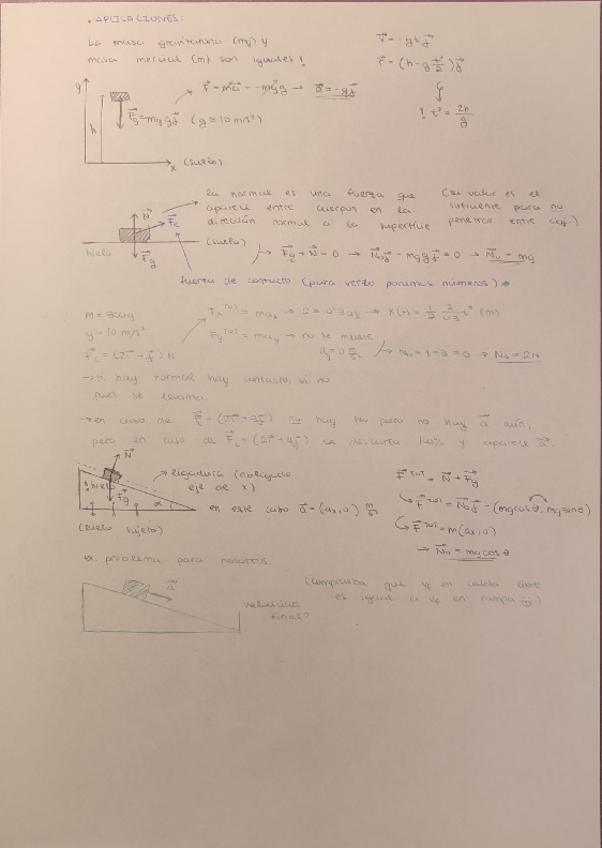 . APLICACIONES:
La masa gravitatoria (mg) y
masa inercial (m) son iguales!
v⃗ = -gt j⃗
r⃗ = (h - g t²/2) j⃗
! t² = 2h/g
y
h
F⃗ = ma⃗ = -mg⃗g → a⃗ = -gj⃗
F⃗g = mg g j⃗ (g ≃ 10 m/s²)
x (suelo)
La normal es una fuerza que
aparece entre cuerpos en la
dirección normal a la superficie
(su valor es el
suficiente para no
penetrar entre
N⃗
F⃗c
(suelo)
hielo
F⃗g
F⃗g + N⃗ = 0 → N⃗₀j⃗ - mg g j⃗ = 0 → N₀ = mg
fuerza de contacto (para verlo ponemos números)
m = 300g
g = 10 m/s²
F⃗c = (2i⃗ + j⃗) N
Fx TOT = max → 2 = 0'3ax → x(t) = 1/2 2/0'3 t² (m)
Fy TOT = may → no se mueve
ay = 0 m/s²
N₀ + 1 - 3 = 0 → N₀ = 2N
→ si hay normal hay contacto, si no
pues se levanta.
→ en caso de F⃗c = (2i⃗ + 3j⃗) no hay N₀ pero no hay a⃗ aún,
pero en caso de F⃗c = (2i⃗ + 4j⃗) se descarta 100% y aparece a⃗.
N⃗
hielo
F⃗g
α
(suelo sujeto)
ligadura (obligado
eje de x)
en este caso a⃗ = (ax, 0) m/s²
F⃗ TOT = N⃗ + F⃗g
F⃗ TOT = N⃗₀j⃗ - (mgcosθ, mgsinθ)
F⃗ TOT = m(ax, 0)
→ N₀ = mgcosθ
ex. problema para nosotros.
a⃗
velocidad
final?
(comprueba que vf en caída libre
es igual a vf en rampa)